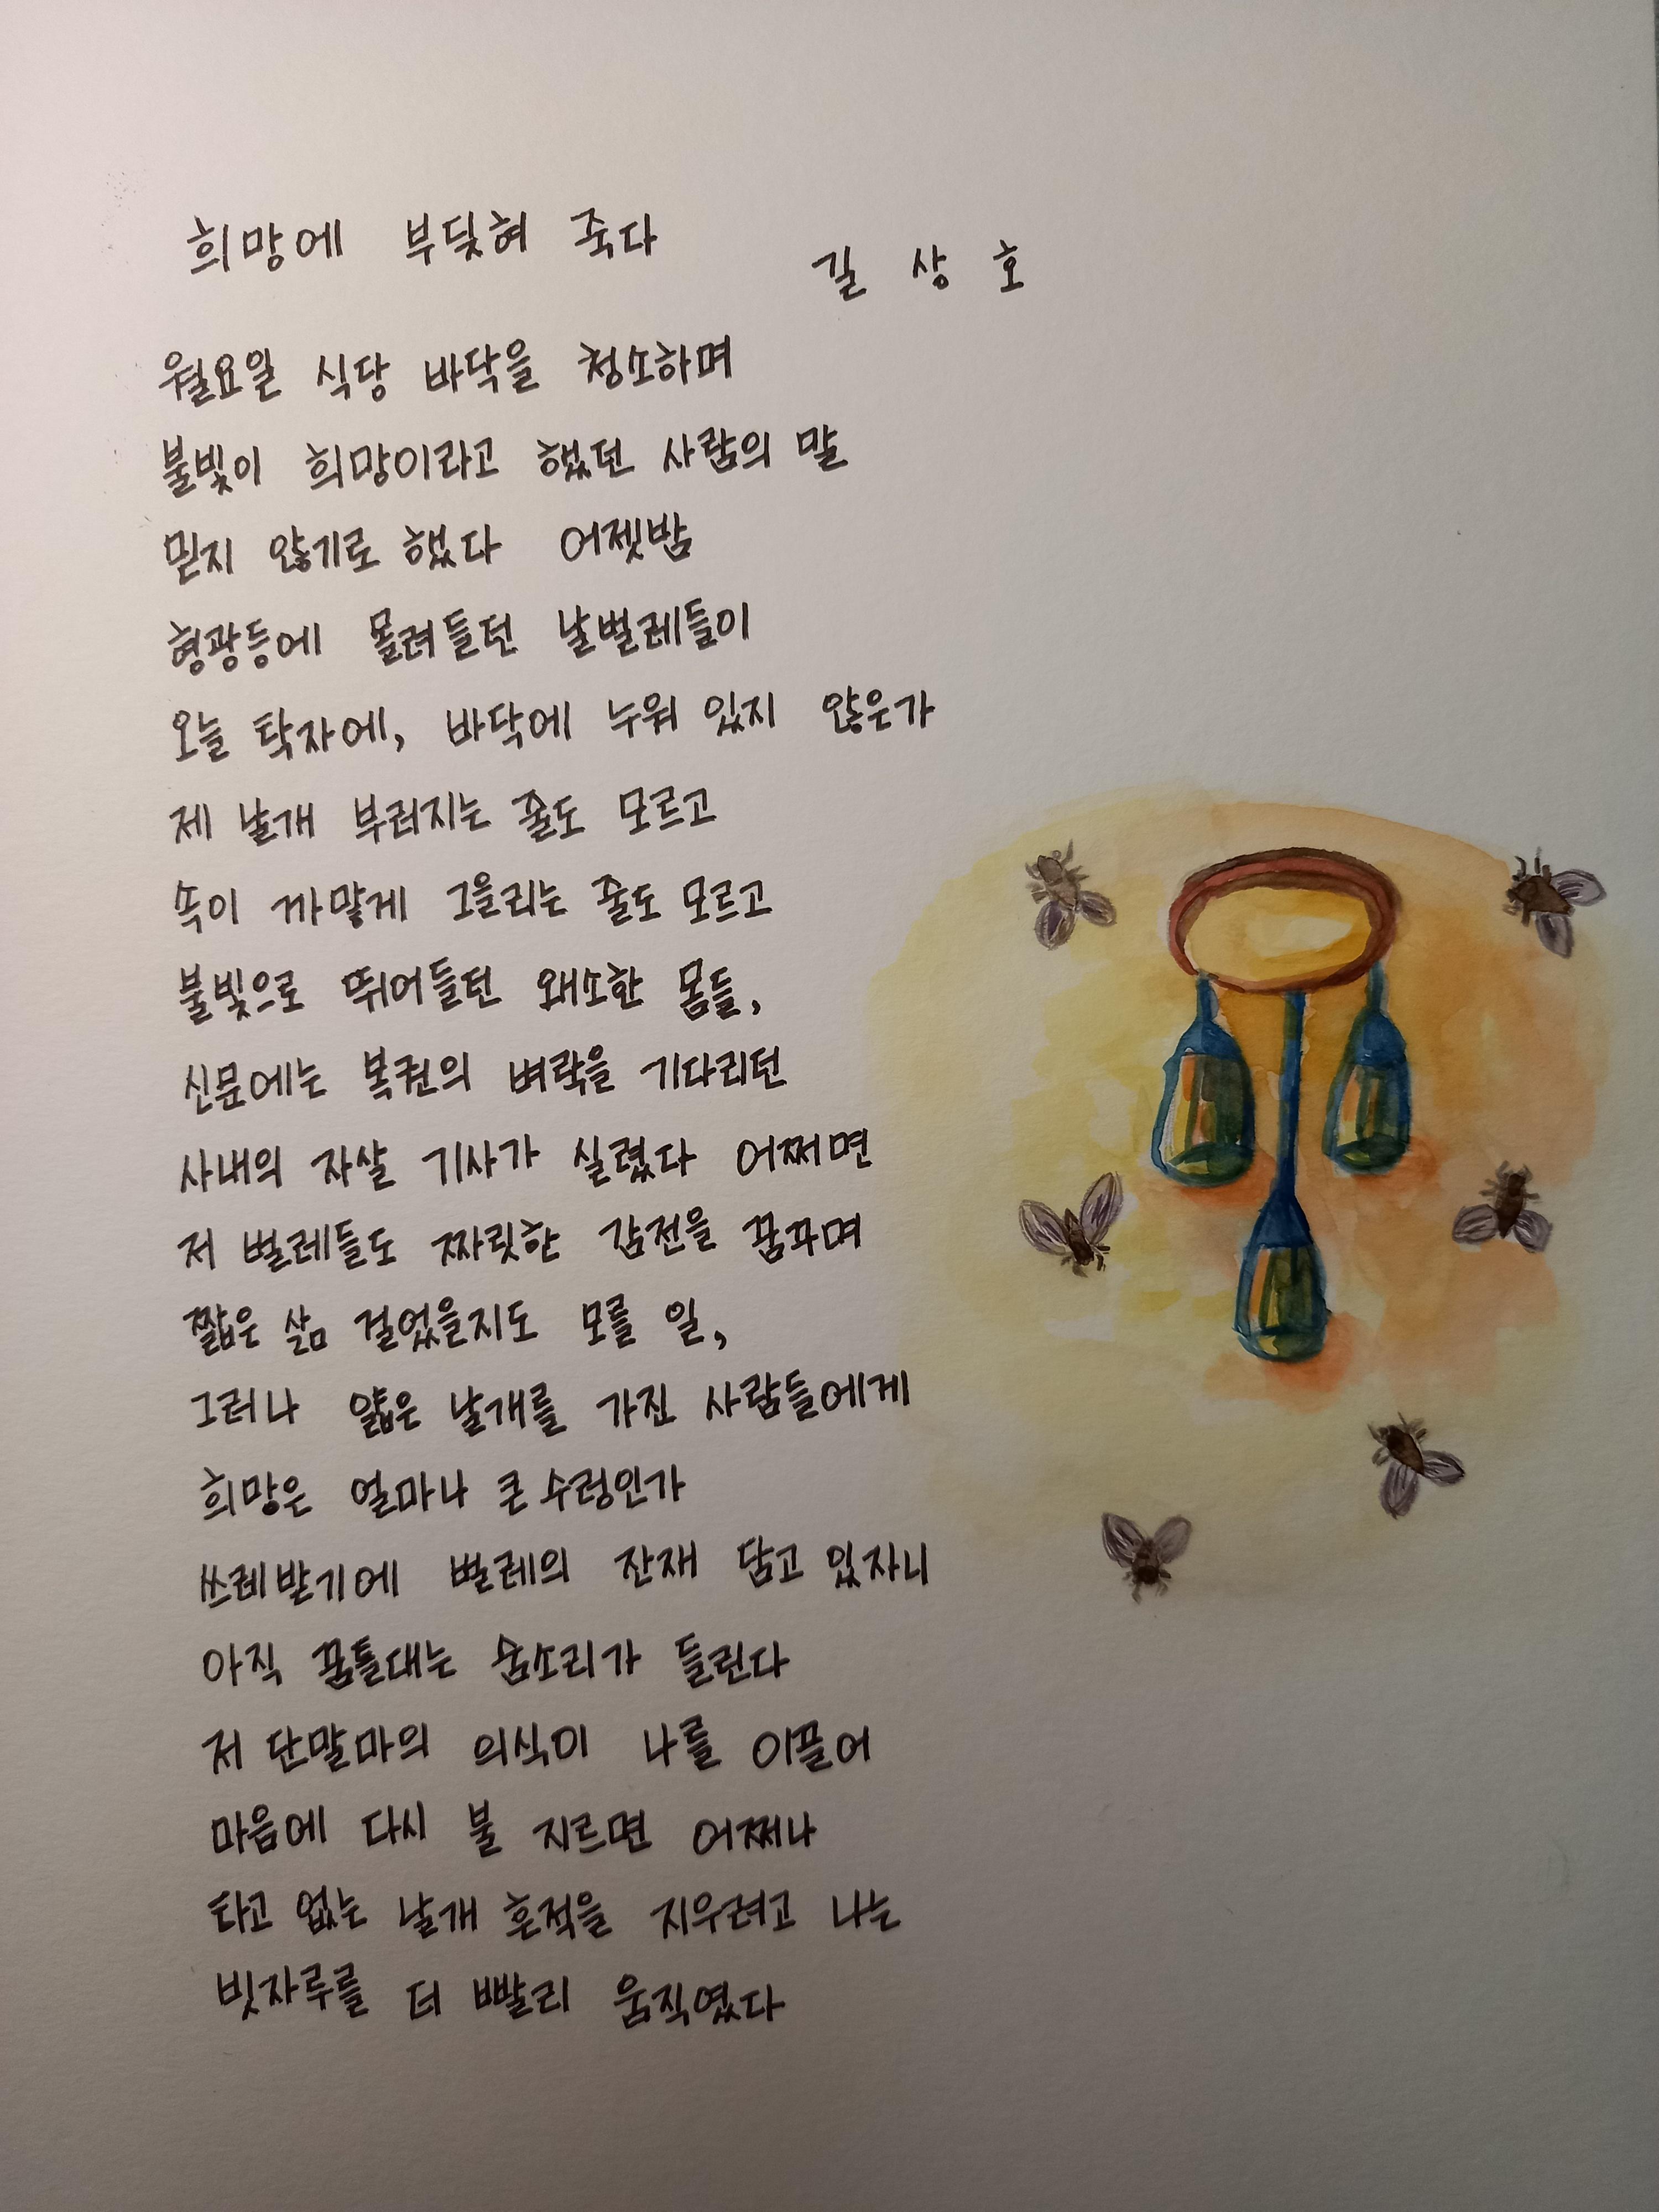 희망에 부딪혀 죽다
길 상 호
월요일 식당 바닥을 청소하며
불빛이 희망이라고 했던 사람의 말
믿지 않기로 했다 어젯밤
형광등에 몰려들던 날벌레들이
오늘 탁자에, 바닥에 누워 있지 않은가
제 날개 부러지는 줄도 모르고
속이 까맣게 그을리는 줄도 모르고
불빛으로 뛰어들던 왜소한 몸들,
신문에는 복권의 벼락을 기다리던
사내의 자살 기사가 실렸다 어쩌면
저 벌레들도 짜릿한 감전을 꿈꾸며
짧은 삶 걸었을지도 모를 일,
그러나 얇은 날개를 가진 사람들에게
희망은 얼마나 큰 수렁인가
쓰레받기에 벌레의 잔재 담고 있자니
아직 꿈틀대는 숨소리가 들린다
저 단말마의 의식이 나를 이끌어
마음에 다시 불 지르면 어쩌나
타고 없는 날개 흔적을 지우려고 나는
빗자루를 더 빨리 움직였다